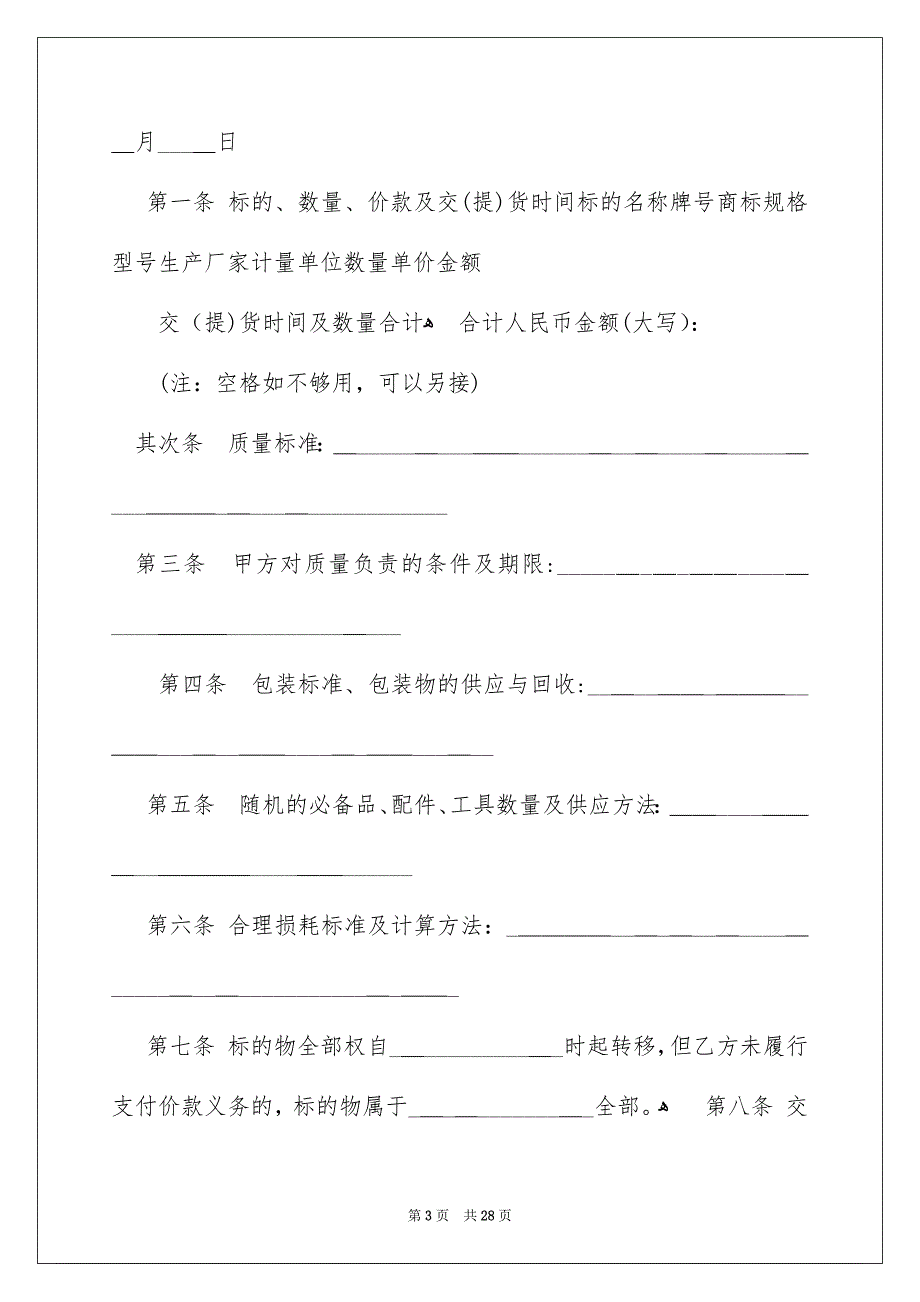 __月_____日
第一条 标的、数量、价款及交(提)货时间标的名称牌号商标规格
型号生产厂家计量单位数量单价金额
交（提)货时间及数量合计ﻫ 合计人民币金额(大写）：
(注：空格如不够用，可以另接)
其次条 质量标准：_________________________________________
_____________________________
第三条 甲方对质量负责的条件及期限:_____________________
_________________________
第四条 包装标准、包装物的供应与回收:___________________
_________________________________
第五条 随机的必备品、配件、工具数量及供应方法：____________
__________________________
第六条 合理损耗标准及计算方法：__________________________
______________________________
第七条 标的物全部权自_______________时起转移,但乙方未履行
支付价款义务的，标的物属于________________全部。ﻫ 第八条 交
第 3 页 共 28 页